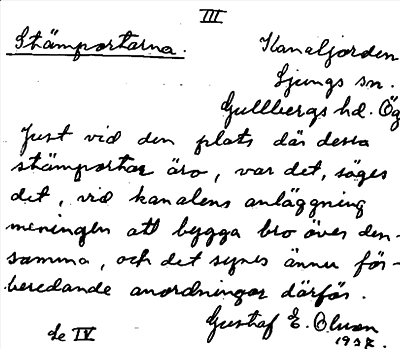 III
Stämportarna. Kanaljorden
Ljungs sn.
Gullbergs hd. Ög
Just vid den plats där dessa
stämportar äro, var det, säges
det, vid kanalens anläggning
meningen att bygga bro över den-
samma, och det synes ännu för-
beredande anordningar därför.
Gustaf E. Olsson
1937.
Se IV